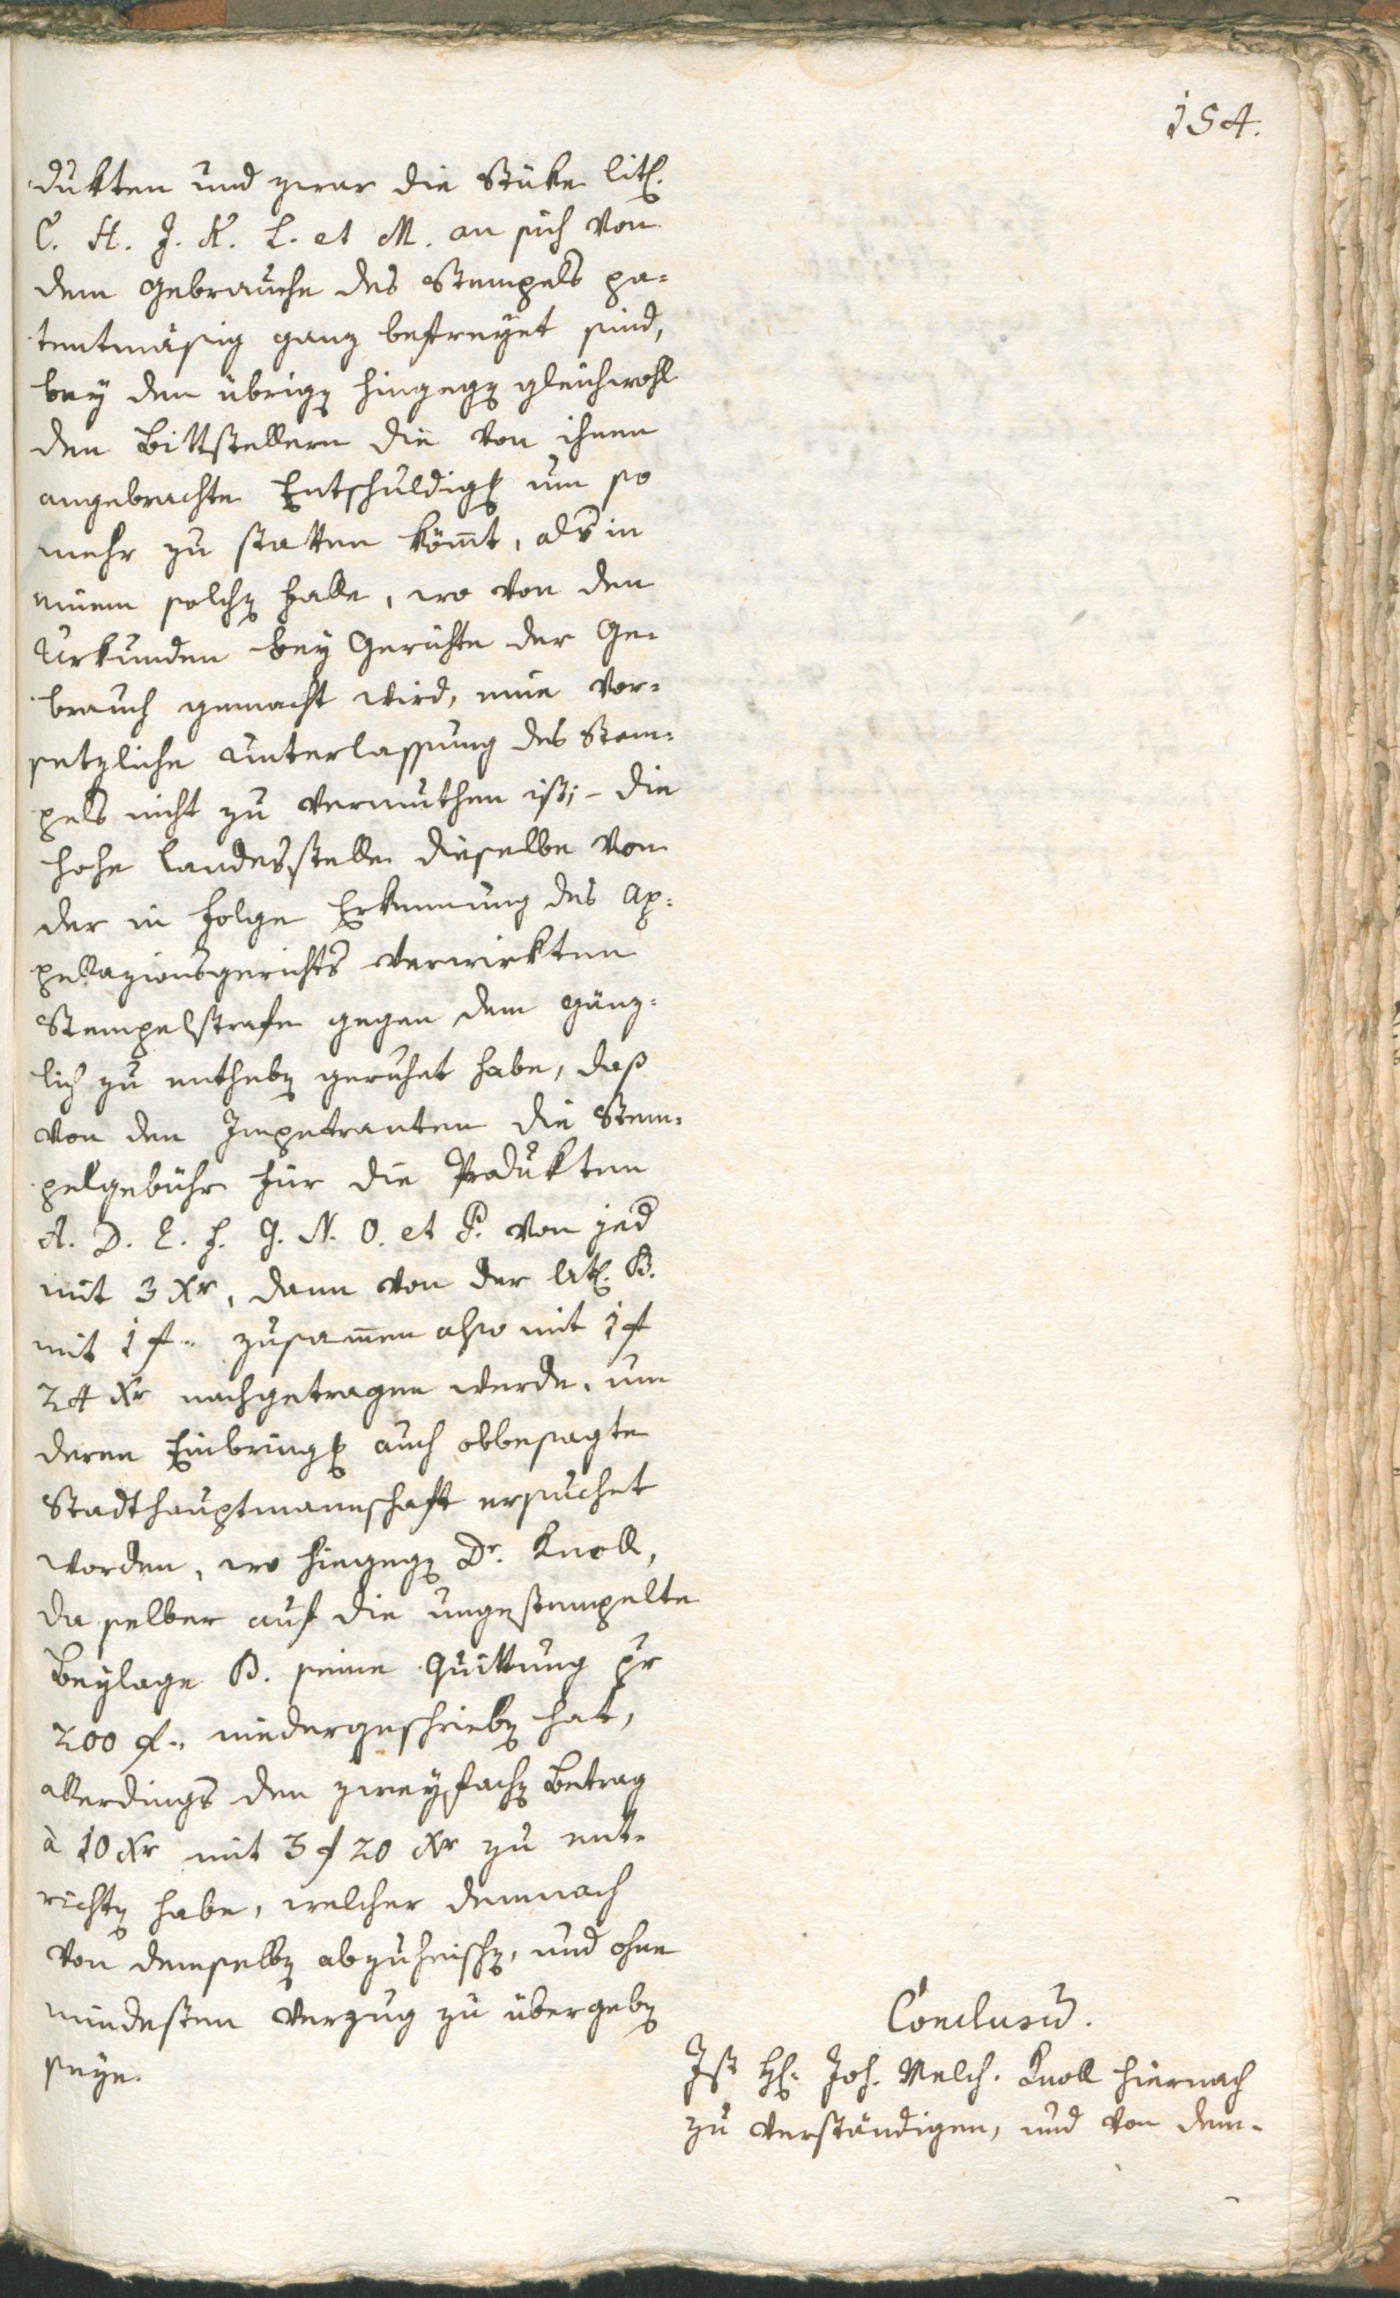 154.
dukten und zwar die Stüke lit.
C. H. J. K. L. et M. an sich von
dem Gebrauche des Stempels pa-
tentmäsig ganz befreyet sind,
bey den übrigen hingegen gleichwohl
den Bittstellern die von ihnen
angebrachte Entschuldigung um so
mehr zu statten kömt, als in
einem solchen Falle, wo von den
Urkunden bey Gerichte der Ge-
brauch gemacht wird, eine vor-
setzliche Unterlassung des Stem-
pels nicht zu vermuthen ist; – die
hohe Landesstelle dieselbe von
der in Folge Erkennung des Ap-
pellazionsgerichts verwirkten
Stempelstrafe gegen dem gänz-
lich zu entheben geruhet habe, daß
von den Impetranten die Stem-
pelgebühr für die Produkten
A. D. E. F. G. N. O. et P. von jed
mit 3 Xr, dann von der lit. B.
mit 1 f. zusamen also mit 1 f
24 Xr nachgetragen werde, um
deren Einbringung auch obbesagte
Stadthauptmannschaft ersuchet
worden, wo hingegen Dr. Knoll,
da selber auf die ungestempelte
Beylage B. seine Quittung pr
200 f. niedergeschrieben hat,
allerdings den zweyfachen Betrag
à 10 Xr mit 3 f 20 Xr zu ent-
richten habe, welcher demnach
von demselben abzuheischen, und ohne
mindesten Verzug zu übergeben
seye.
Conclusum.
Ist H. Joh. Melch. Knoll hiernach
zu verständigen, und von dem-